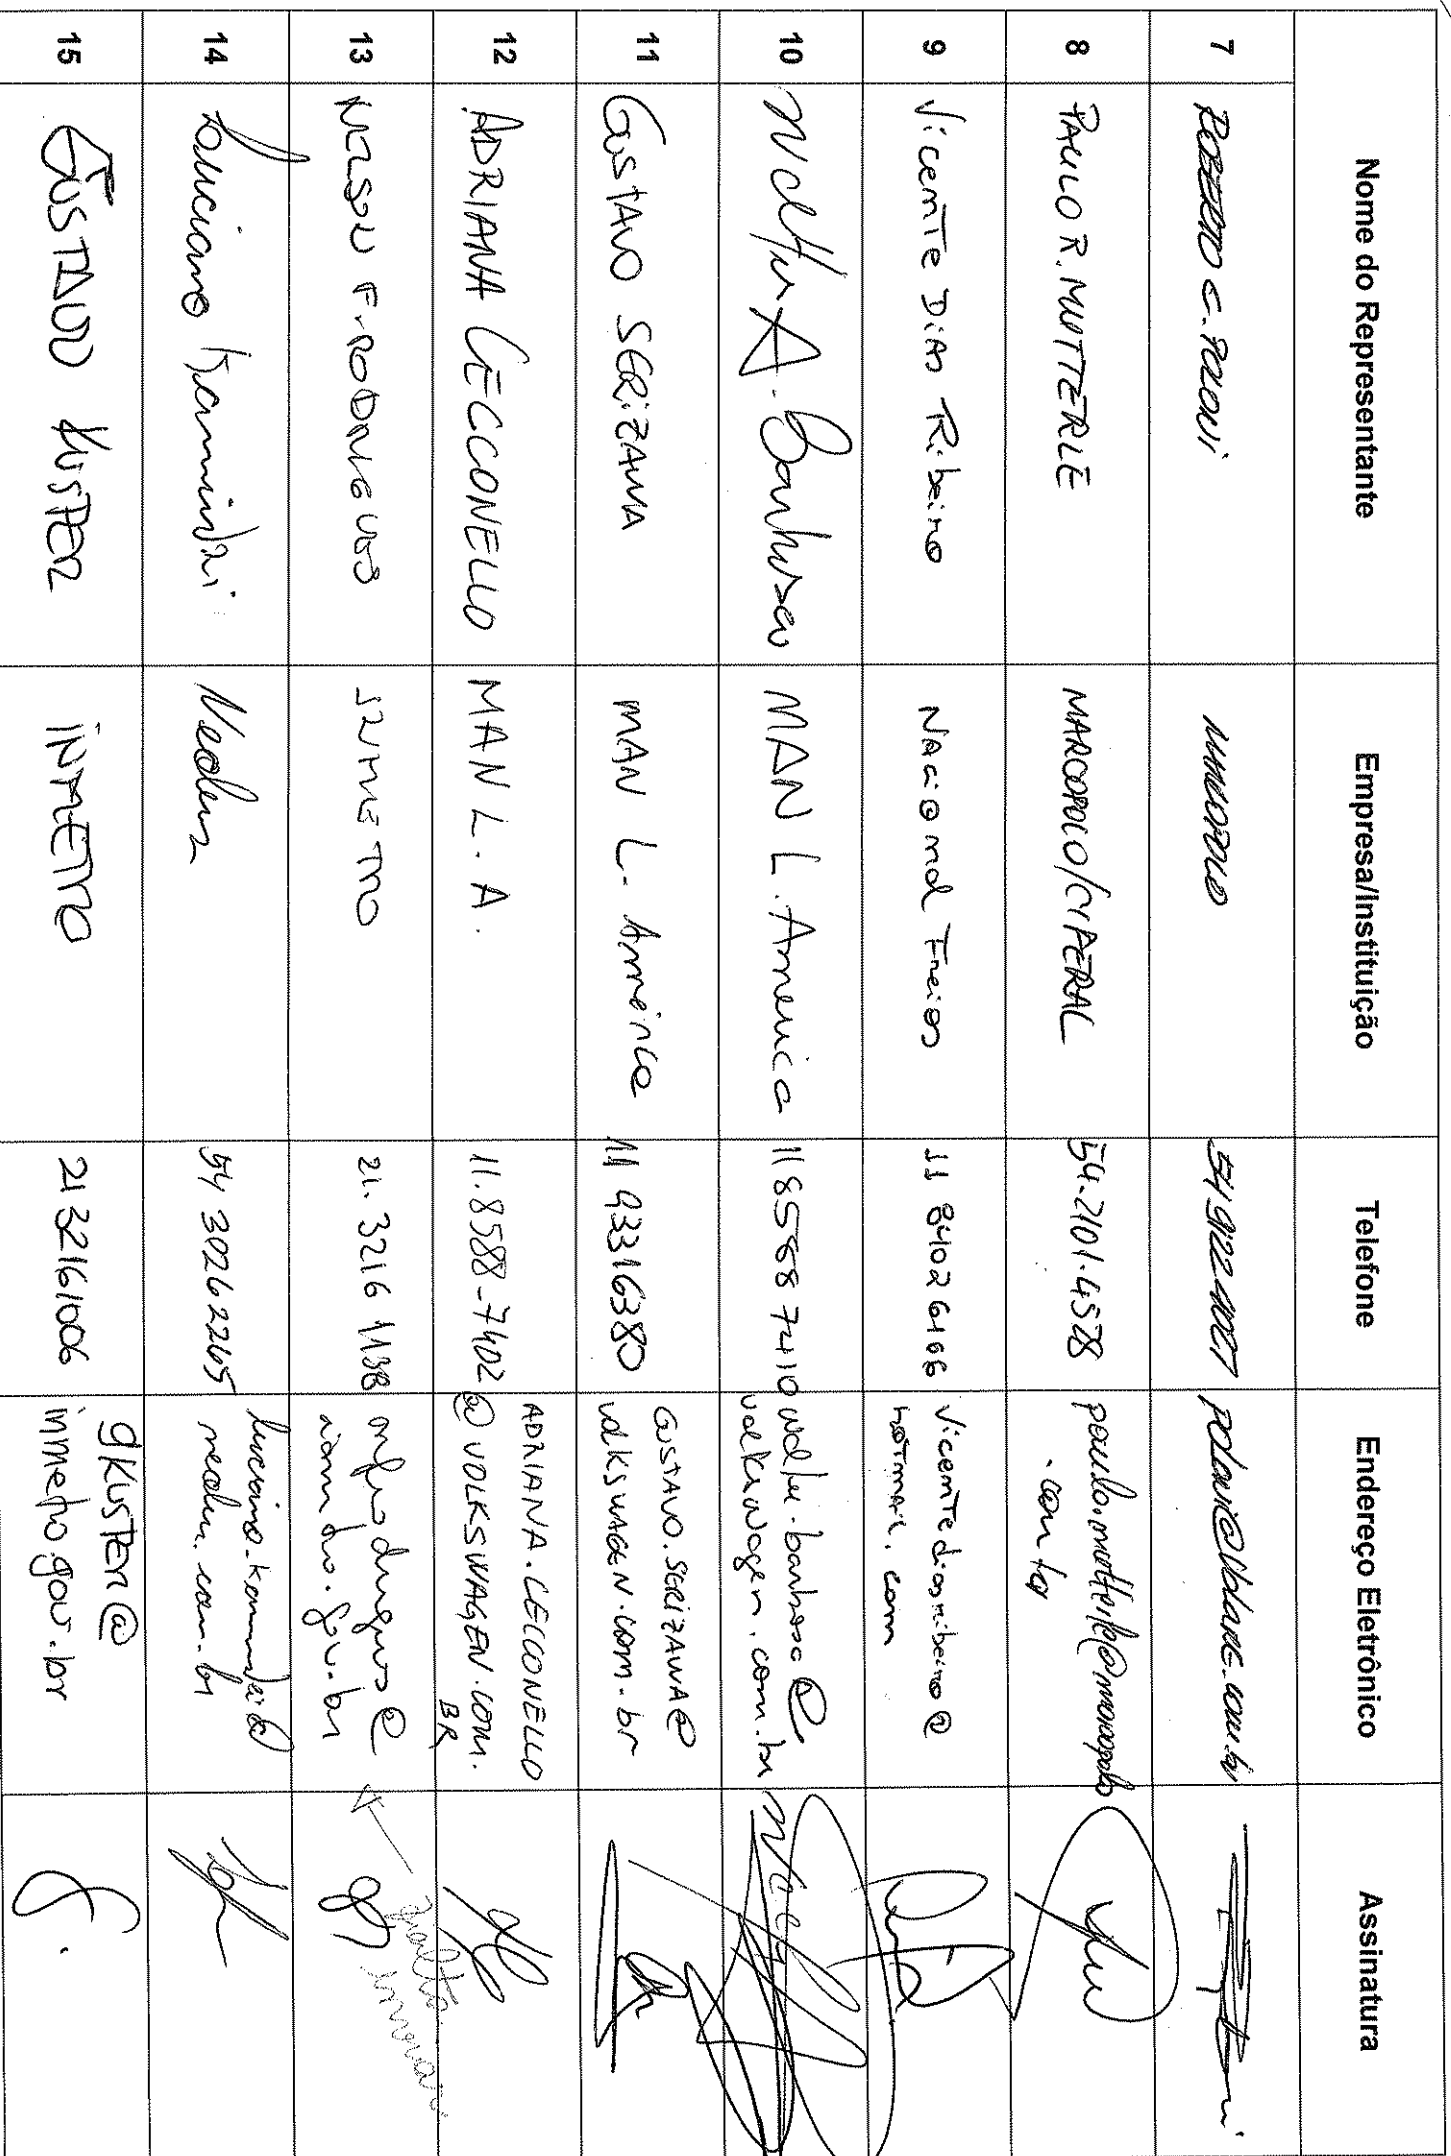 Nome do Representante Empresa/Instituição Telefone Endereço Eletrônico Assinatura
7 ROBERTO C. POLONI MARCOPOLO poloni@volare.com.br
8 PAULO R. MUTTERLE MARCOPOLO/CIFERAL 54.2101.4578 paulo.mutterle@marcopolo
.com.br
9 Vicente Dias Ribeiro Nacional Freios 11 84026166 vicentediasribeiro@
hotmail.com
10 Walter A. Barbosa MAN L. America 11 85587410 walter.barbosa@
volkswagen.com.br
11 GUSTAVO SERIZAWA MAN L. America 11 93316380 GUSTAVO.SERIZAWA@
volkswagen.com.br
12 ADRIANA CECCONELLO MAN L. A. 11.8588-7402 ADRIANA.CECCONELLO
@VOLKSWAGEN.COM.
BR
13 NELSON F. RODRIGUES INMETRO 21. 3216 1138 nfrodrigues@
inmetro.gov.br
14 Luciano Neobus 54 3026 2265
neobus.com.br
15 GUSTAVO KUSTER INMETRO 21 32161006 gkuster@
inmetro.gov.br